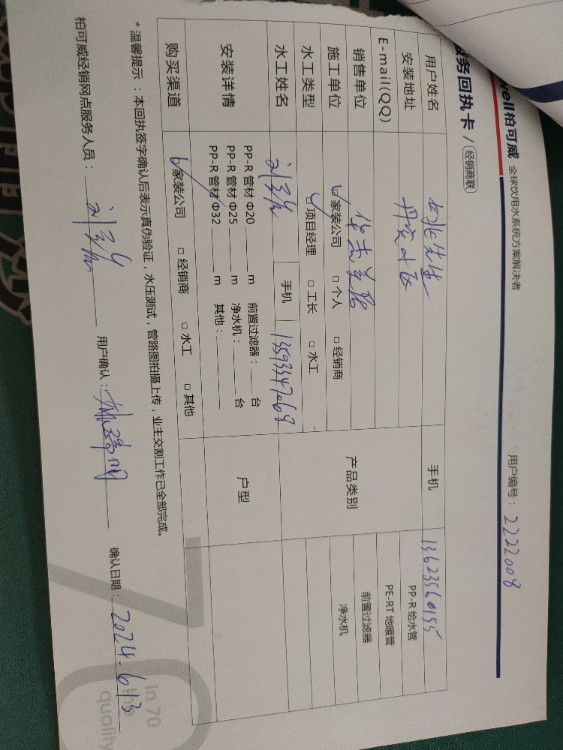 well柏可威 全球饮用水系统方案解决者
用户编号：2222008
务回执卡 / 经销商联
用户姓名 先生 手机 13623560155
安装地址
E-mail(QQ)
销售单位
产品类别 PP-R 给水管 PE-RT 地暖管 前置过滤器 净水机
施工单位 家装公司 □ 个人 □ 经销商
水工类型 项目经理 □ 工长 □ 水工
水工姓名 手机 13593347069
安装详情 PP-R 管材 Φ20 m 前置过滤器： 台
PP-R 管材 Φ25 m 净水机： 台
PP-R 管材 Φ32 m 其他：
户型
购买渠道 家装公司 □ 经销商 □ 水工 □ 其他
*温馨提示：本回执签字确认后表示真伪验证，水压测试，管路图拍摄上传，业主交割工作已全部完成。
柏可威经销网点服务人员： 用户确认： 确认日期：2024.6.13
In 70
the
quality